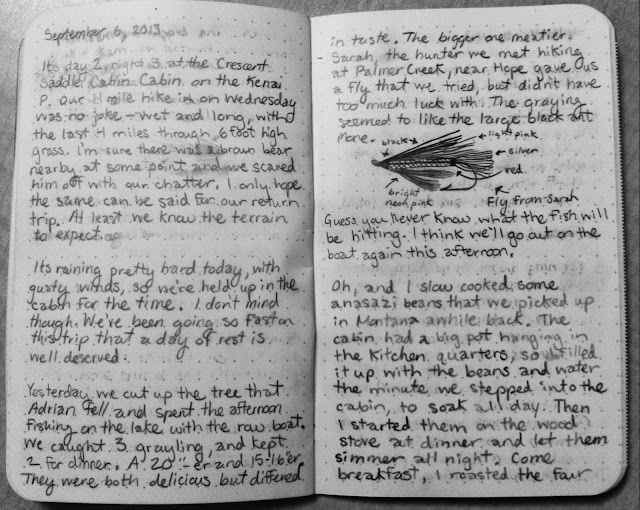 September 6, 2013
It's day 2, night 3 at the Crescent
Saddle Cabin Cabin on the Kenai
P. Our 11 mile hike in on Wednesday
was no joke - wet and long, with
the last 4 miles through 6 foot high
grass. I'm sure there was a brown bear
nearby at some point and we scared
him off with our chatter. I only hope
the same can be said for our return
trip. At least we know the terrain
to expect.
Its raining pretty hard today, with
gusty winds, so we're held up in the
cabin for the time. I don't mind
though. We've been going so fast on
this trip that a day of rest is
well deserved.
Yesterday we cut up the tree that
Adrian fell and spent the afternoon
fishing on the lake with the row boat.
We caught 3 grayling, and kept
2 for dinner. A 20"-er and 15-16"er.
They were both delicious but differed
in taste. The bigger one meatier.
Sarah, the hunter we met hiking
at Palmer Creek, near Hope gave us
a fly that we tried, but didn't have
too much luck with. The grayling
seemed to like the large black ant
more.
black
light pink
silver
red
bright
neon pink
Fly from Sarah
Guess you never know what the fish will
be hitting. I think we'll go out on the
boat again this afternoon.
Oh, and I slow cooked some
anasazi beans that we picked up
in Montana awhile back. The
cabin had a big pot hanging in
the kitchen quarters, so I filled
it up with the beans and water
the minute we stepped into the
cabin, to soak all day. Then
I started them on the wood
stove at dinner and let them
simmer all night. Come
breakfast, I roasted the four